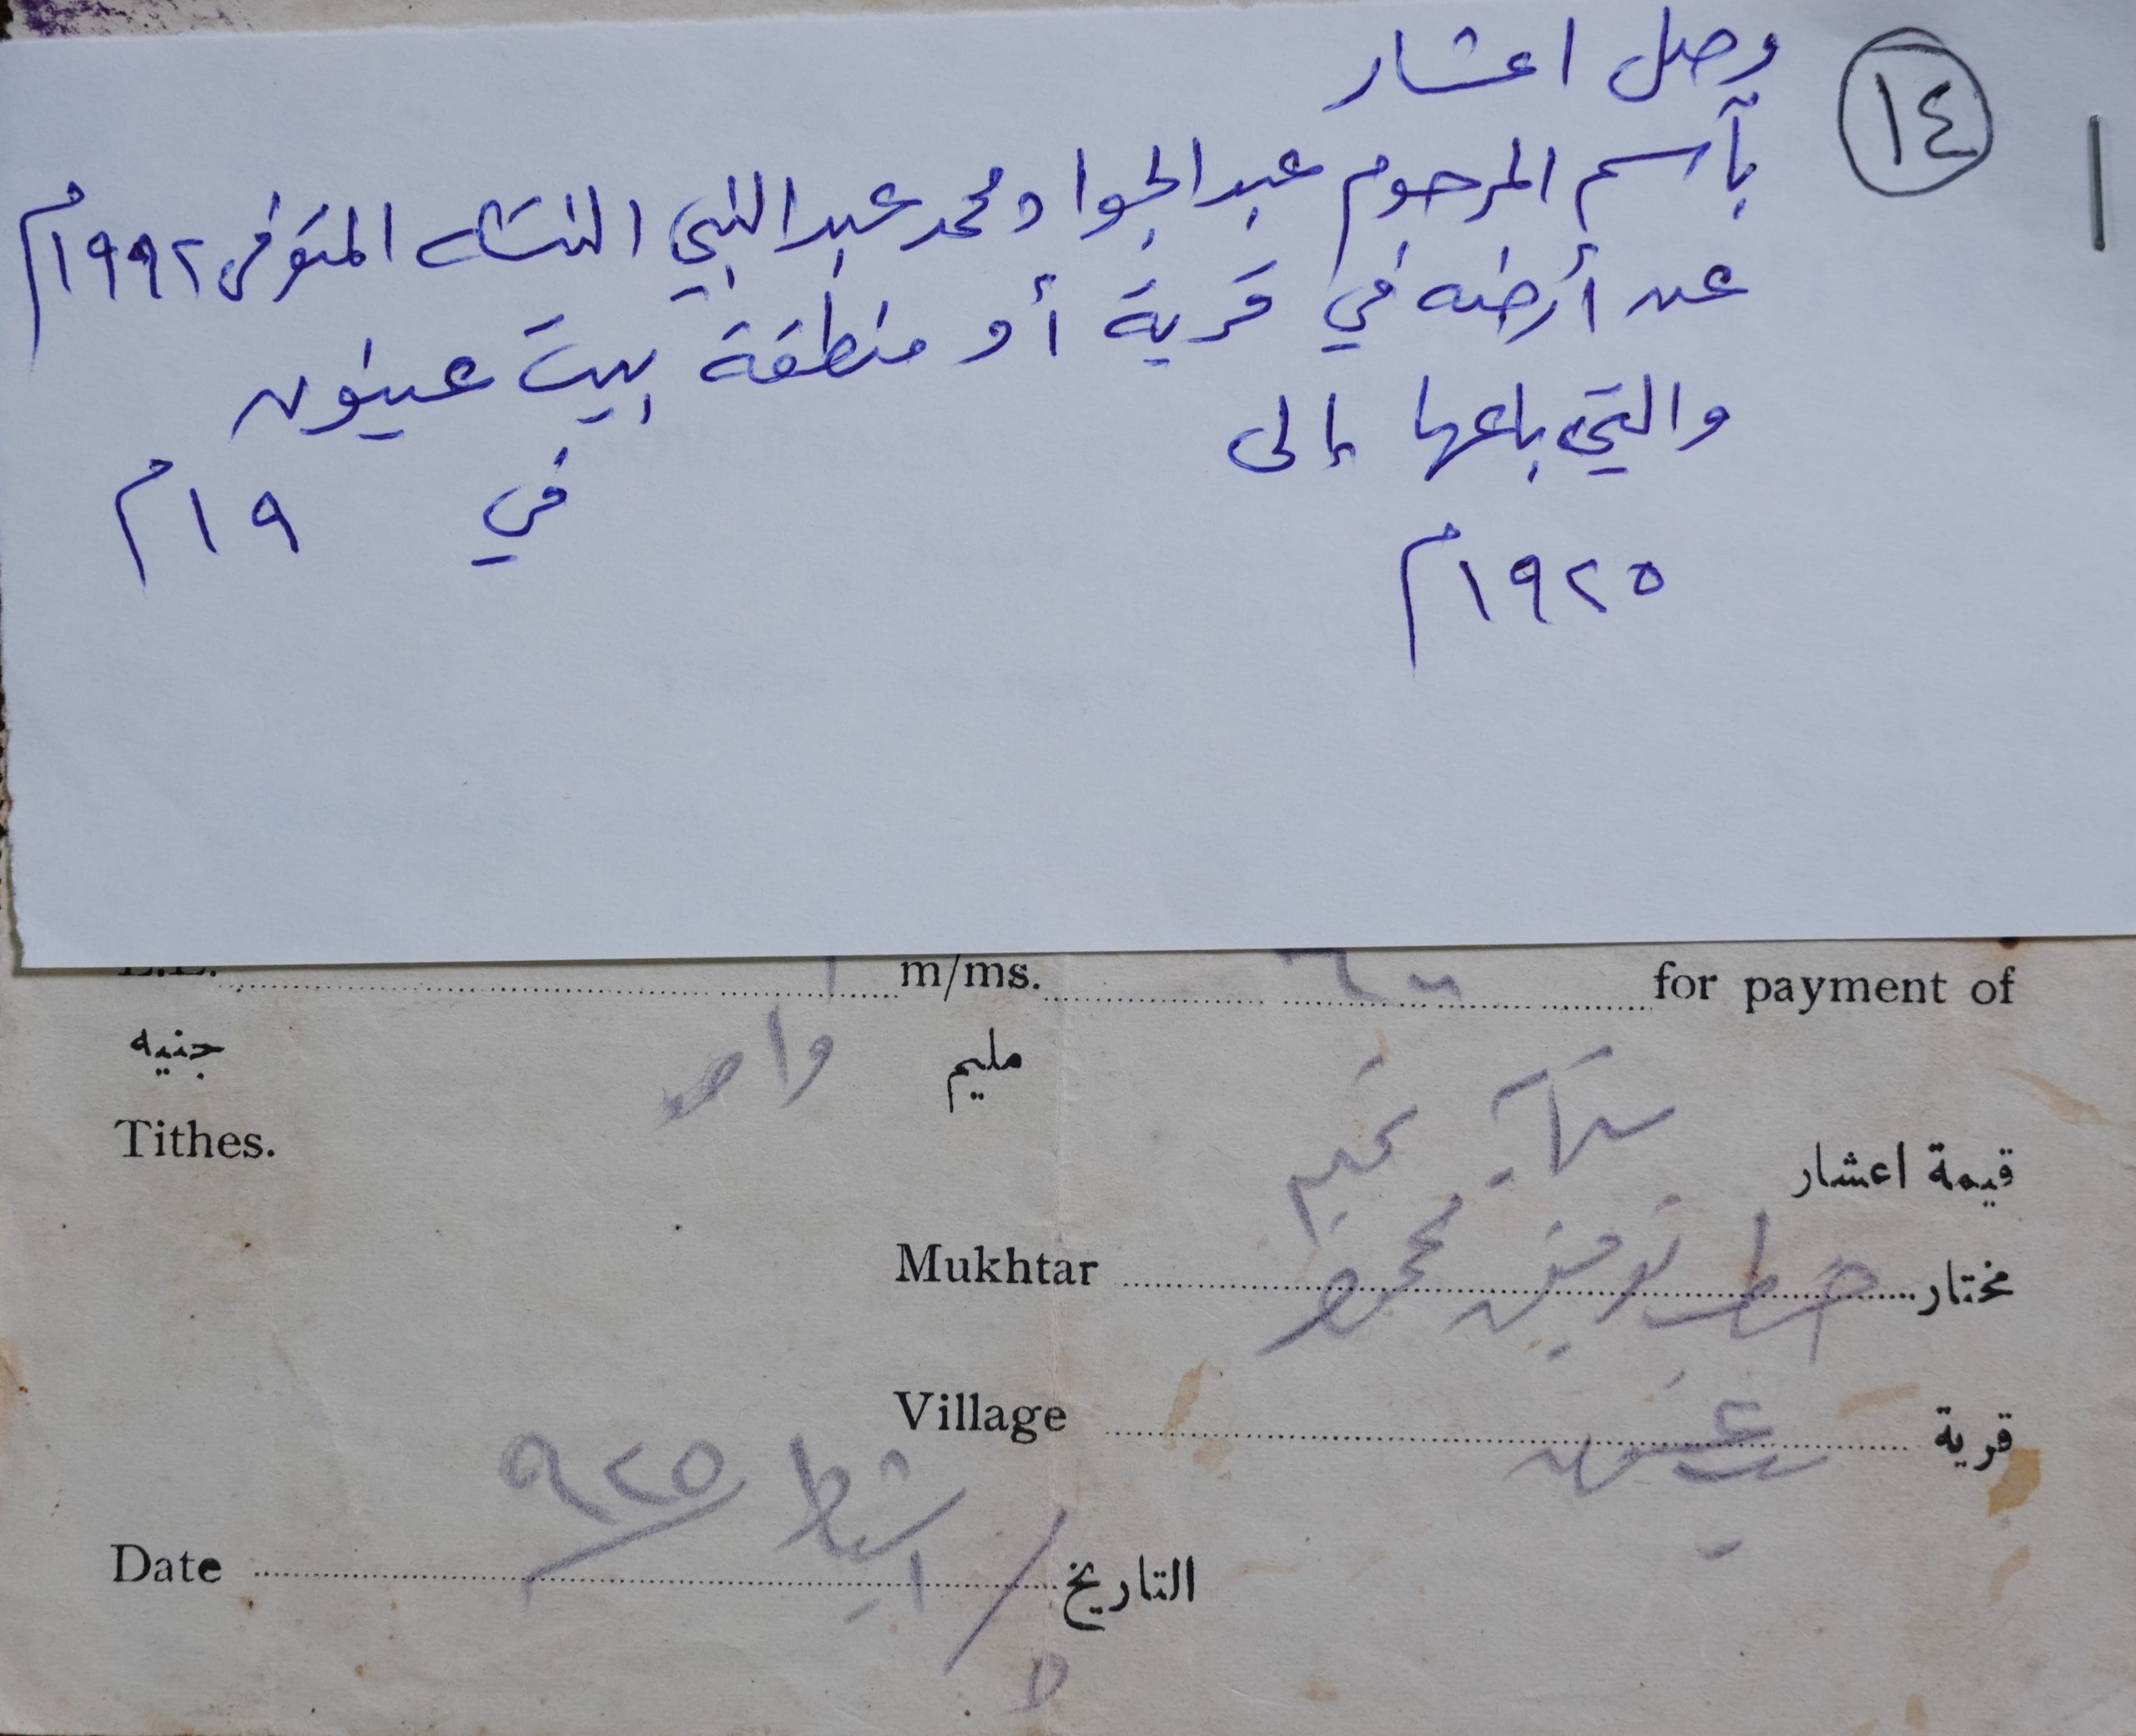 ١٤
وصل اعشار
بآسم المرحوم عبد الجواد محمد عبد النبي النتشه المتوفى ١٩٩٢م
عن أرضه في قرية أو منطقة بيت عينون
والتي باعها إلى في ١٩م
١٩٢٥م
L.E. ١ m/ms. ٦٠٠ for payment of
جنيه واحد مليم
Tithes.
قيمة اعشار
Mukhtar توفيق مختار
Village بيت عينون قرية
Date ٩٢٥ شباط / ٥ التاريخ